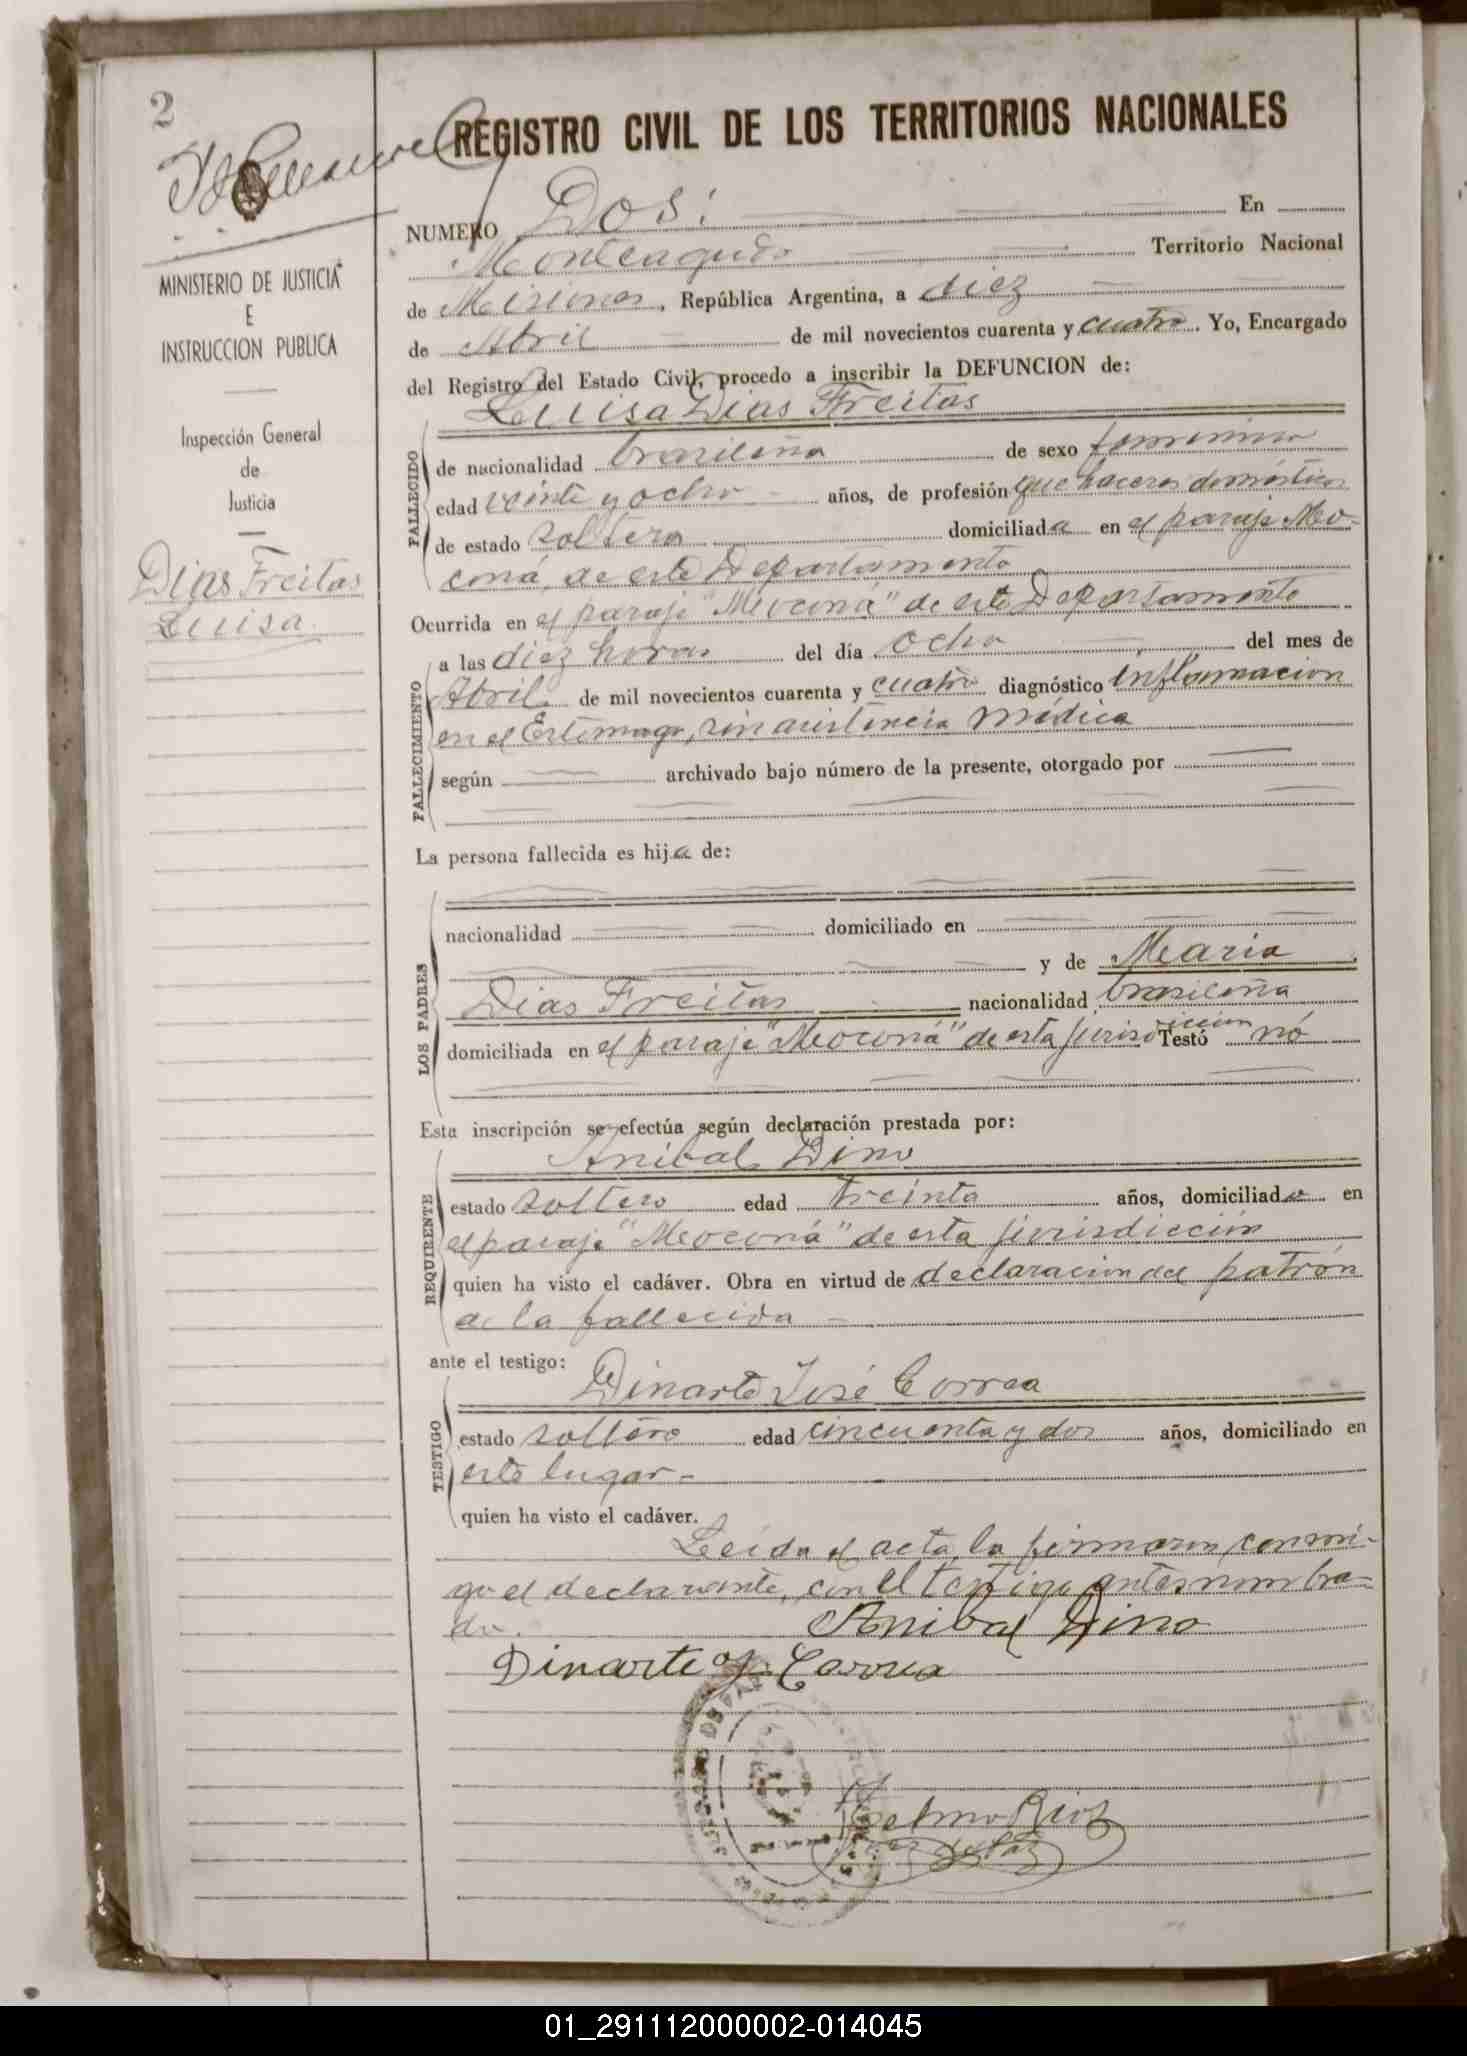 2
REGISTRO CIVIL DE LOS TERRITORIOS NACIONALES
NUMERO Dos: En
Monteagudo Territorio Nacional
de Misiones, República Argentina, a diez
de Abril de mil novecientos cuarenta y cuatro. Yo, Encargado
del Registro del Estado Civil, procedo a inscribir la DEFUNCION de:
Luisa Dias Freitas
MINISTERIO DE JUSTICIA
E
INSTRUCCION PUBLICA
Inspección General
de
Justicia
Dias Freitas
Luisa
FALLECIDO
de nacionalidad brasileña de sexo femenino
edad veinte y ocho años, de profesión que haceres domésticos
de estado soltera domiciliada en el paraje Mo-
coná, de este Departamento
Ocurrida en el paraje "Moconá" de este Departamento
FALLECIMIENTO
a las diez horas del día ocho del mes de
Abril de mil novecientos cuarenta y cuatro diagnóstico inflamacion
en el Estomago, sin asistencia médica
según archivado bajo número de la presente, otorgado por
La persona fallecida es hija de:
LOS PADRES
nacionalidad domiciliado en
y de Maria
Dias Freitas nacionalidad brasileña
domiciliada en el paraje "Moconá" de esta jurisdiccion Testó nó
Esta inscripción se efectúa según declaración prestada por:
Anibal Dino
REQUIRENTE
estado soltero edad treinta años, domiciliado en
el paraje "Moconá" de esta jurisdicción
quien ha visto el cadáver. Obra en virtud de declaracion del patrón
de la fallecida
ante el testigo:
Dinarte José Correa
TESTIGO
estado soltero edad cincuenta y dos años, domiciliado en
este lugar-
quien ha visto el cadáver.
Leída el acta, la firmaron conmi-
go el declarante, con el testigo antes nombra-
do. Anibal Dino
Dinarte J. Correa
Rios
Juez de Paz
01_291112000002-014045